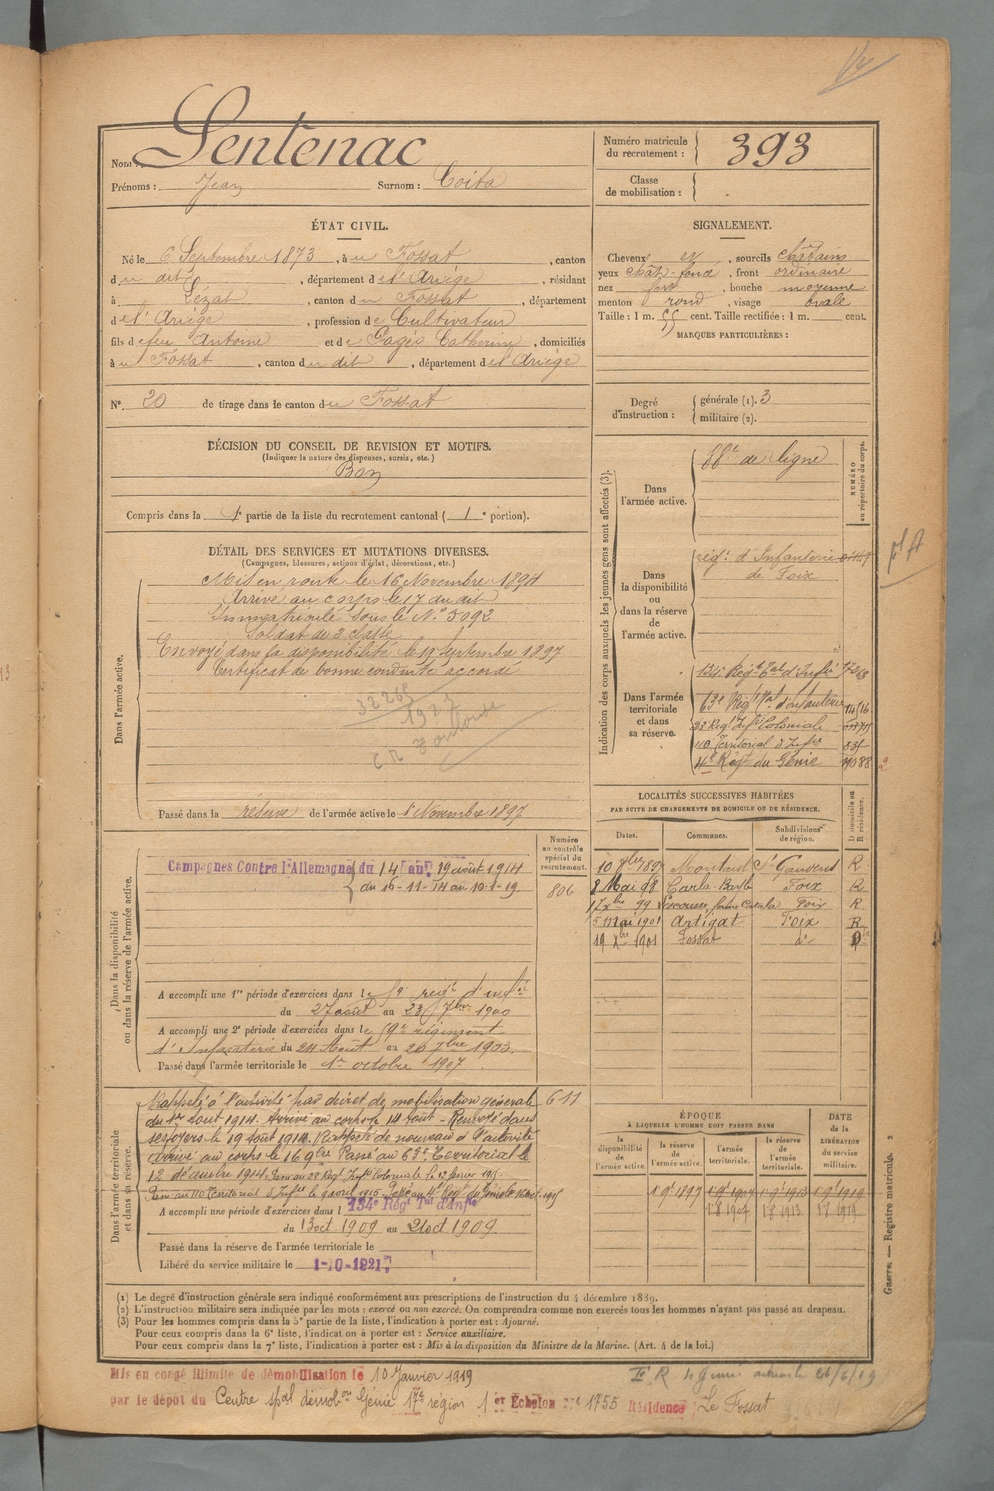 Nom : Sentenac
Prénoms : Jean Surnom : Coita
Numéro matricule du recrutement : 393
Classe de mobilisation :
ÉTAT CIVIL.
Né le 6 Septembre 1873, à u Fossat, canton
du dit, département de l'Ariège, résidant
à Lézat, canton du Fossat, département
de l'Ariège, profession de Cultivateur
fils de feu Antoine et de Pagès Catherine, domiciliés
à u Fossat, canton du dit, département de l'Ariège
N° 20 de tirage dans le canton du Fossat
SIGNALEMENT.
Cheveux et, sourcils châtains
yeux chât-foncé, front ordinaire
nez fort, bouche moyenne
menton rond, visage ovale
Taille : 1 m. 55 cent. Taille rectifiée : 1 m. cent.
MARQUES PARTICULIÈRES :
Degré d'instruction : générale (1). 3
militaire (2).
DÉCISION DU CONSEIL DE REVISION ET MOTIFS.
(Indiquer la nature des dispenses, sursis, etc.)
Bon
Compris dans la 1e partie de la liste du recrutement cantonal (1e portion).
DÉTAIL DES SERVICES ET MUTATIONS DIVERSES.
(Campagnes, blessures, actions d'éclat, décorations, etc.)
Dans l'armée active.
Mis en route le 16 Novembre 1894
Arrivé au corps le 17 du dit
Immatriculé sous le N° 5092
Soldat de 2e classe
Envoyé dans la disponibilité le 19 Septembre 1897
Certificat de bonne conduite accordé
1927
CR Toulouse
Passé dans la réserve de l'armée active le 1er Novembre 1897
Indication des corps auxquels les jeunes gens sont affectés (3).
NUMÉRO au répertoire du corps.
Dans l'armée active. de ligne
Dans la disponibilité ou dans la réserve de l'armée active.
régt d'Infanterie
de Foix
Dans l'armée territoriale et dans sa réserve.
134e Régt Tal d'Infie
63e Régt Tal d'infanterie
38 Régt Infie Coloniale
110 Territorial d'Infie
4e Régt du Génie
LOCALITÉS SUCCESSIVES HABITÉES
PAR SUITE DE CHANGEMENTS DE DOMICILE OU DE RÉSIDENCE.
Dates. Communes. Subdivisions de région. D domicile ou R résidence.
St Gaudens R
8 Mai 98 Carla-Bayle Foix R
Foix R
5 mai 1901 Artigat Foix R
19 Xbre 1901 Fossat do
Dans la disponibilité ou dans la réserve de l'armée active.
Numéro au contrôle spécial du recrutement.
Campagnes Contre l'Allemagne du 14 au 19 août 1914
du 16-11-14 au 10-1-19.
806
A accompli une 1re période d'exercices dans le 59e régt d'infie
du 27 août au 23 7bre 1900
A accompli une 2e période d'exercices dans le 59e régiment
d'Infanterie du 24 Août au 20 7bre 1903.
Passé dans l'armée territoriale le 1er octobre 1907
Dans l'armée territoriale et dans sa réserve.
611
Rappelé à l'activité par décret de mobilisation générale
du 1er août 1914. Arrivé au corps le 14 août - Renvoyé dans
ses foyers le 19 août 1914. Rappelé de nouveau à l'activité
Arrivé au corps le 16 9bre Passé au 63e Territorial le
12 décembre 1914. Passé au 38 Régt Infie Coloniale le 12 janvier 1915.
Passé au 110 Territorial d'Infie le 9 avril 1915.
A accompli une période d'exercices dans l 134e Régt Tal d'Infie
du 13 oct 1909 au 21 oct 1909.
Passé dans la réserve de l'armée territoriale le
Libéré du service militaire le 1-10-1921
ÉPOQUE
À LAQUELLE L'HOMME DOIT PASSER DANS
DATE DE LA LIBÉRATION du service militaire.
la disponibilité de l'armée active. la réserve de l'armée active. l'armée territoriale. la réserve de l'armée territoriale.
1 9bre 1897
Guerre. — Registre matricule. 2
(1) Le degré d'instruction générale sera indiqué conformément aux prescriptions de l'instruction du 4 décembre 1889.
(2) L'instruction militaire sera indiquée par les mots : exercé ou non exercé. On comprendra comme non exercés tous les hommes n'ayant pas passé au drapeau.
(3) Pour les hommes compris dans la 5e partie de la liste, l'indication à porter est : Ajourné.
Pour ceux compris dans la 6e liste, l'indication à porter est : Service auxiliaire.
Pour ceux compris dans la 7e liste, l'indication à porter est : Mis à la disposition du Ministre de la Marine. (Art. 4 de la loi.)
Mis en congé illimité de démobilisation le 10 Janvier 1919
par le dépôt du Centre spal démobon Génie 17e région 1er Échelon N° 1755 Résidence Le Fossat